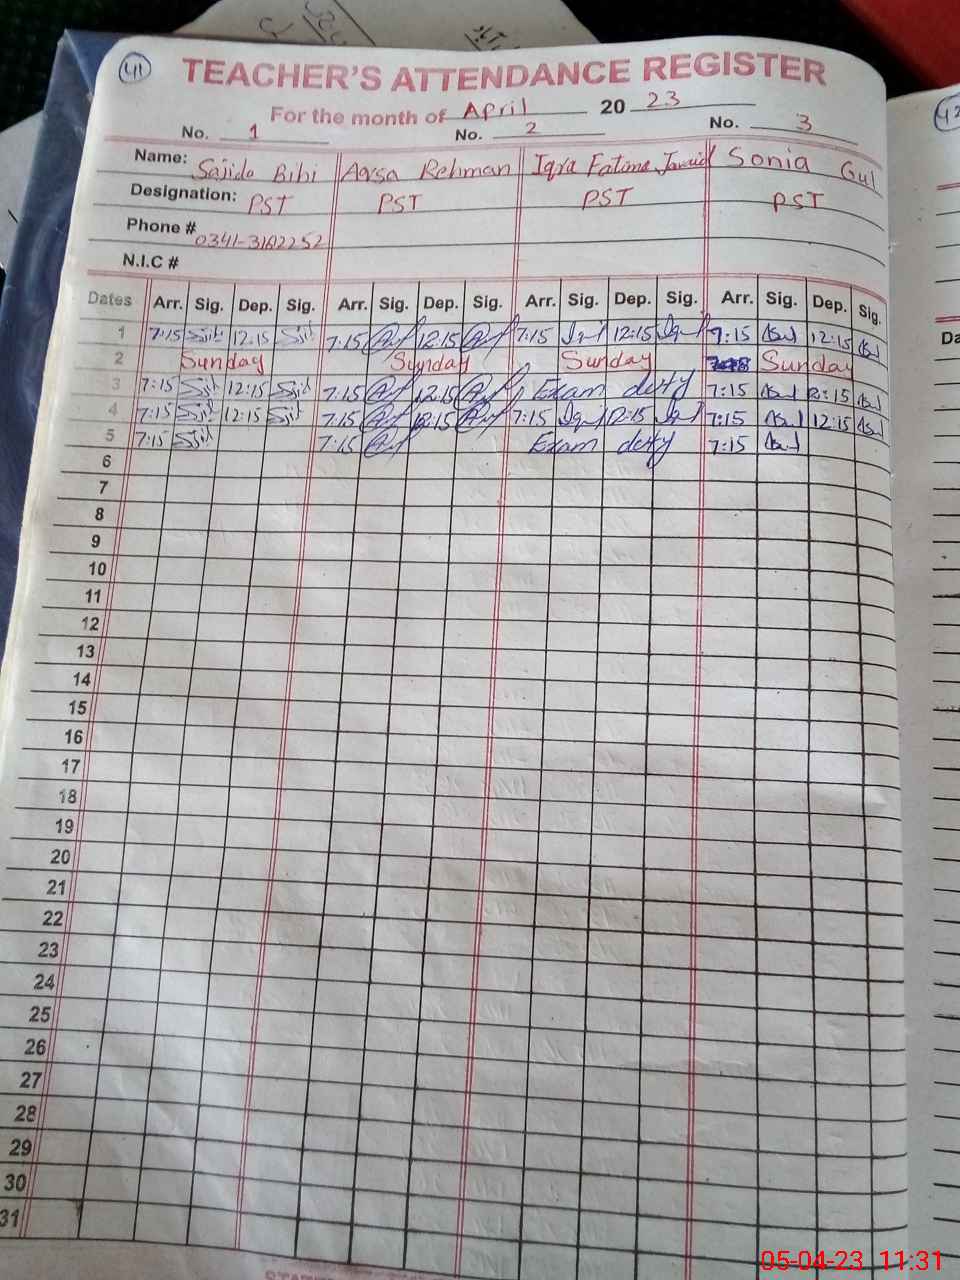 41
TEACHER'S ATTENDANCE REGISTER
For the month of April 20 23
No. 1 No. 2 No. 3
Name: Sajida Bibi Aqsa Rehman Iqra Fatima Javaid Sonia Gul
Designation: PST PST PST PST
Phone #
N.I.C #
Dates Arr. Sig. Dep. Sig. Arr. Sig. Dep. Sig. Arr. Sig. Dep. Sig. Arr. Sig. Dep. Sig.
1 7:15 12:15 7:15 12:15 7:15 12:15 7:15 12:15
2 Sunday Sunday Sunday Sunday
3 7:15 12:15 7:15 12:15 Exam duty 7:15 12:15
4 7:15 12:15 7:15 12:15 7:15 12:15 7:15 12:15
5 7:15 7:15 Exam duty 7:15
6
7
8
9
10
11
12
13
14
15
16
17
18
19
20
21
22
23
24
25
26
27
28
29
30
31
42
Da
05-04-23 11:31